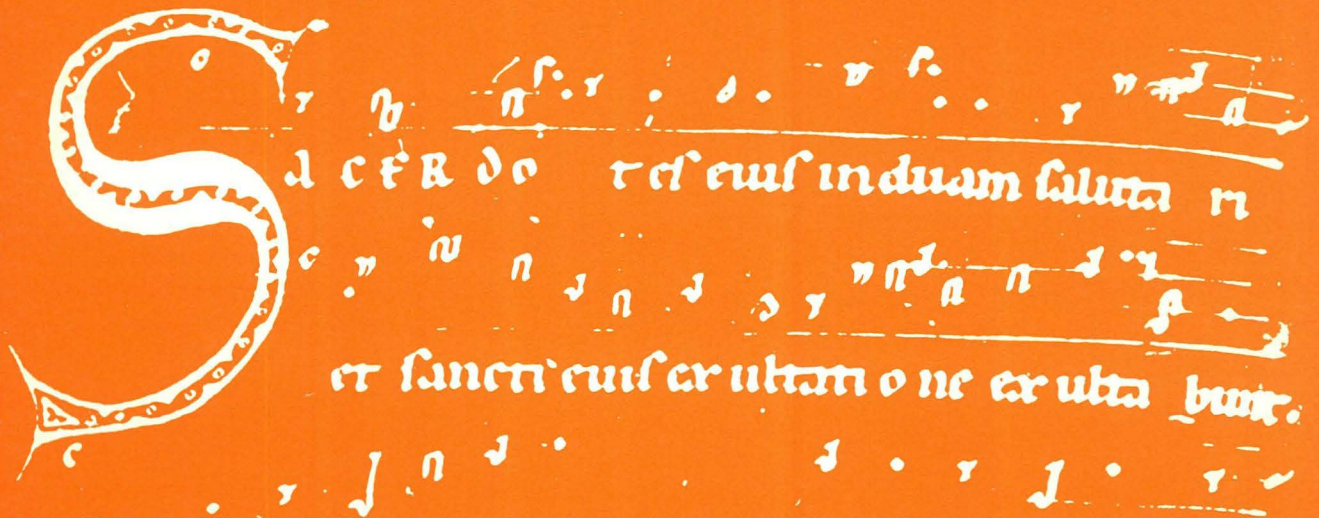 SaCERdo tes eius induam saluta ri
et sancti eius ex ultati o ne ex ulta bunt.